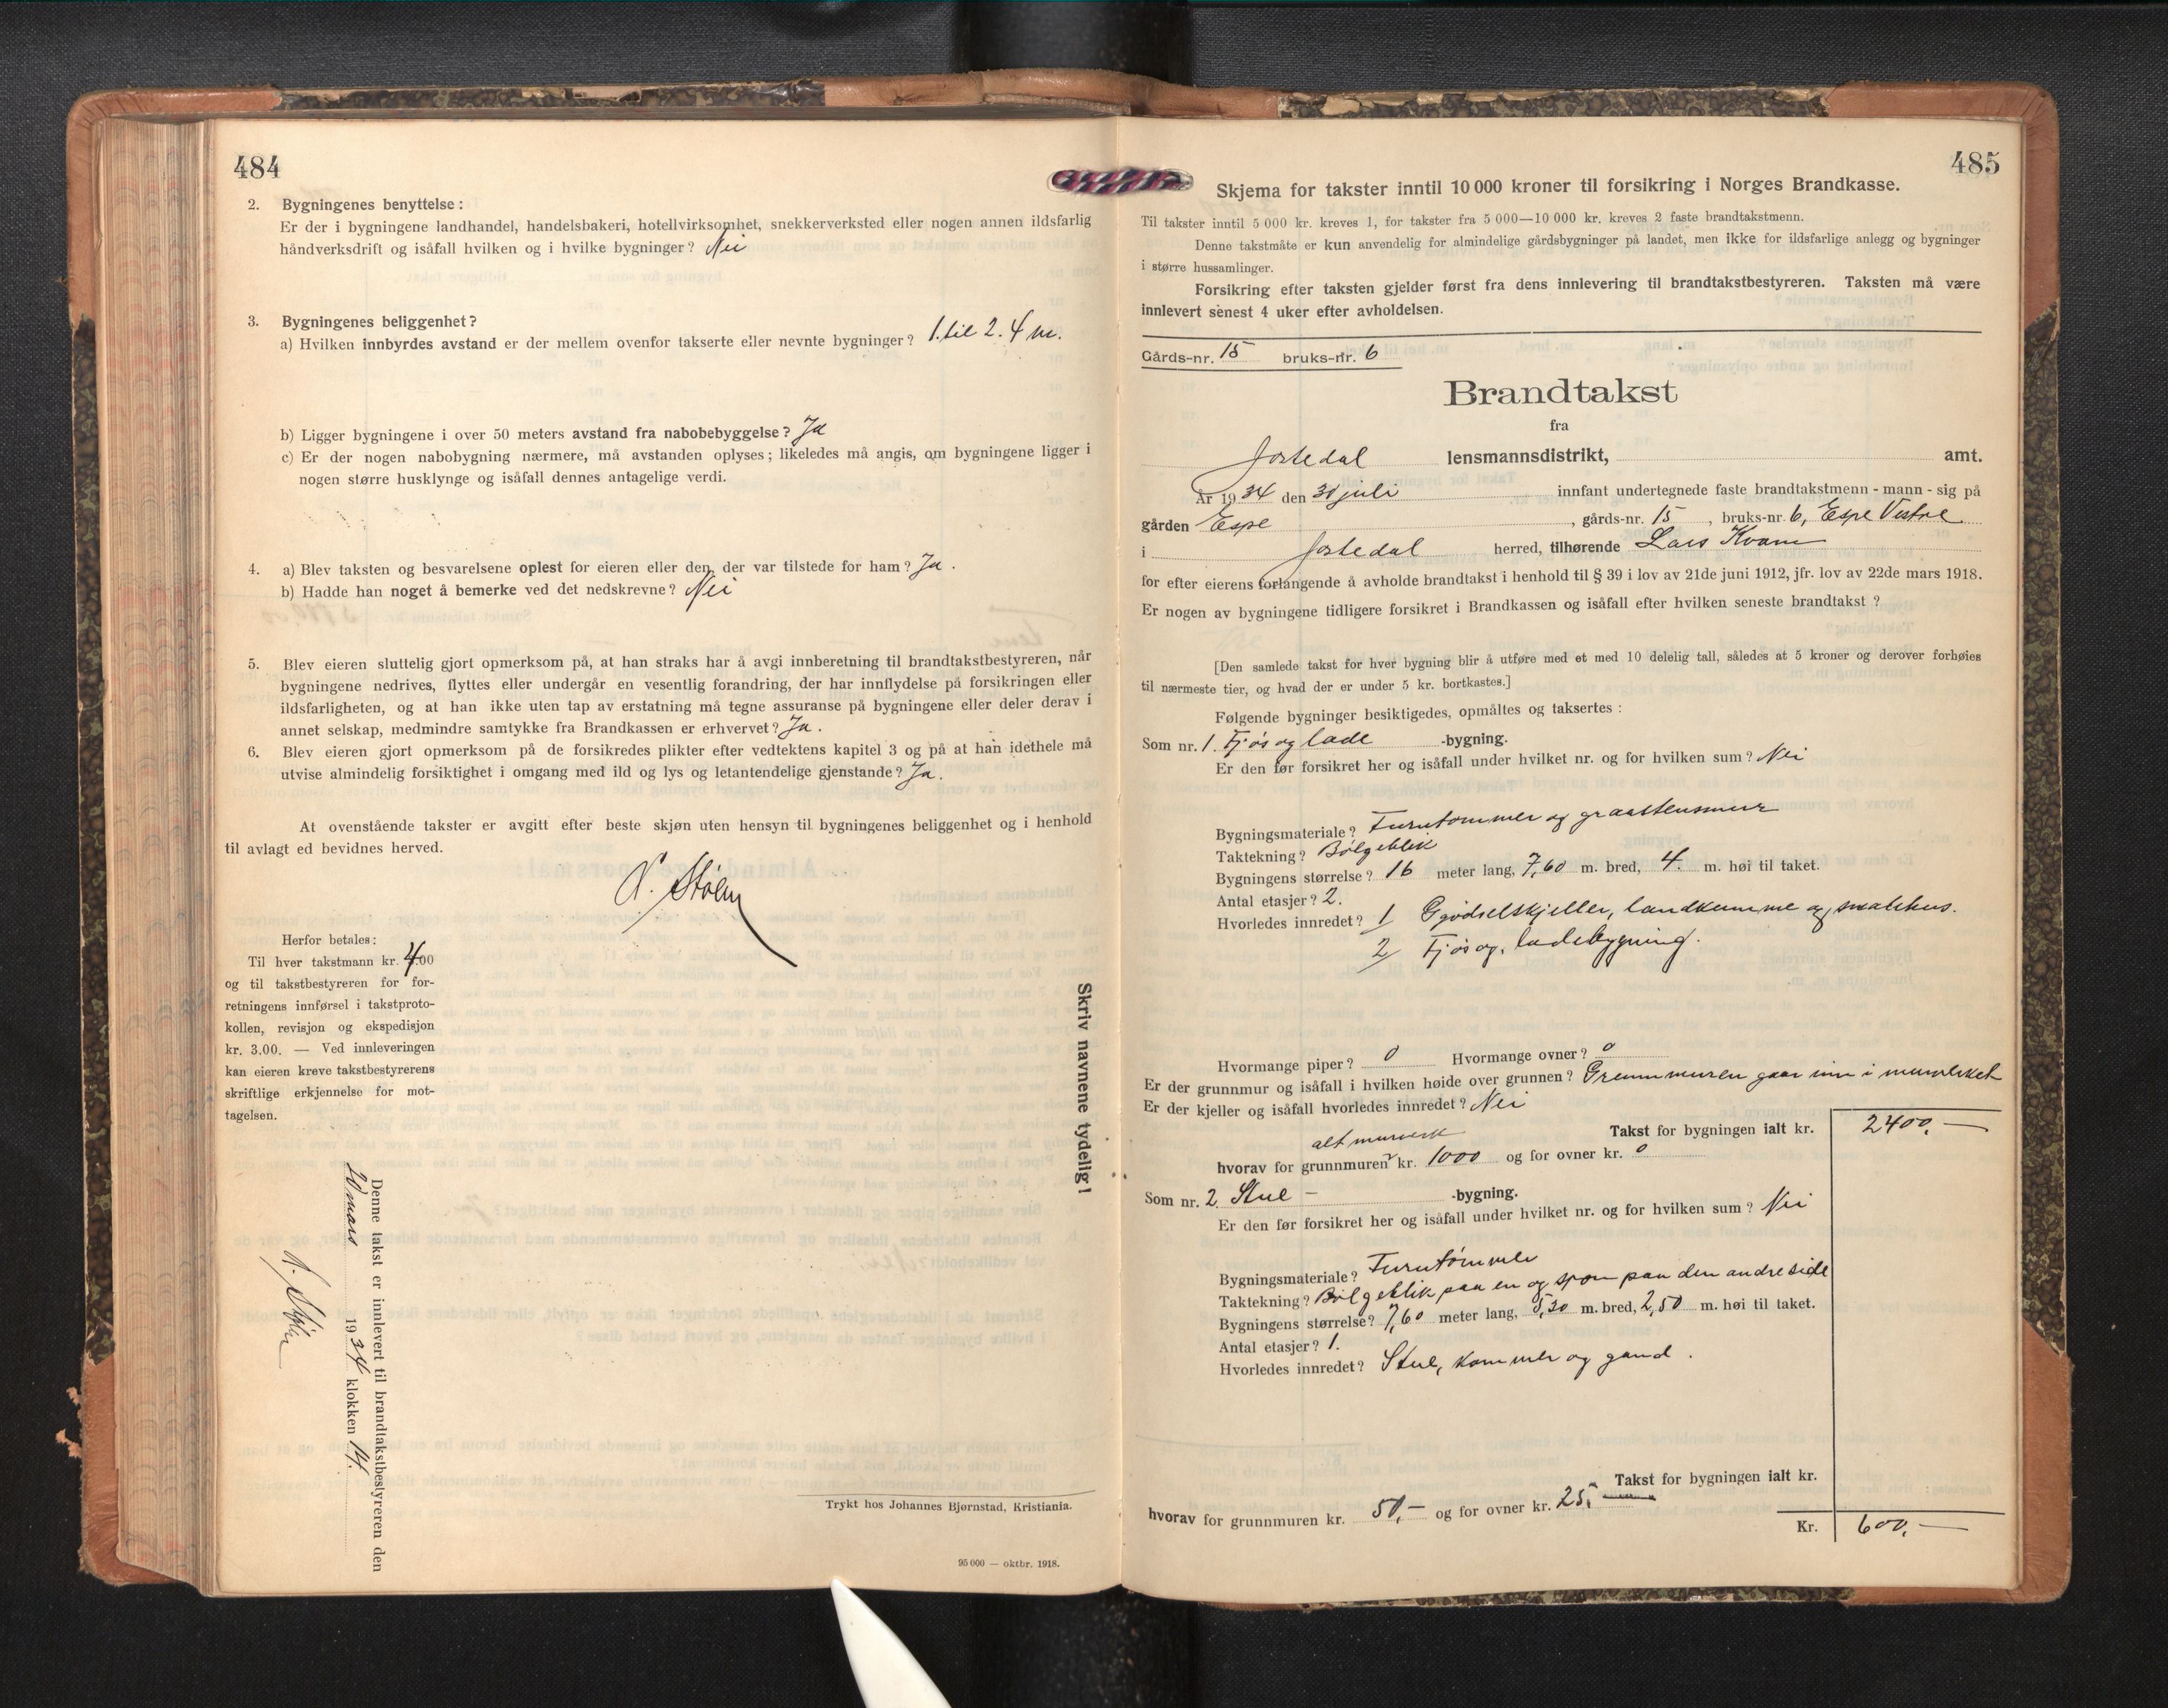 484
2. Bygningenes benyttelse:
Er der i bygningene landhandel, handelsbakeri, hotellvirksomhet, snekkerverksted eller nogen annen ildsfarlig
håndverksdrift og isåfall hvilken og i hvilke bygninger? Nei
3. Bygningenes beliggenhet?
a) Hvilken innbyrdes avstand er der mellem ovenfor takserte eller nevnte bygninger? 1. til 2. 4 m.
b) Ligger bygningene i over 50 meters avstand fra nabobebyggelse? Ja
c) Er der nogen nabobygning nærmere, må avstanden oplyses; likeledes må angis, om bygningene ligger i
nogen større husklynge og isåfall dennes antagelige verdi.
4. a) Blev taksten og besvarelsene oplest for eieren eller den, der var tilstede for ham? Ja.
b) Hadde han noget å bemerke ved det nedskrevne? Nei
5. Blev eieren sluttelig gjort opmerksom på, at han straks har å avgi innberetning til brandtakstbestyreren, når
bygningene nedrives, flyttes eller undergår en vesentlig forandring, der har innflydelse på forsikringen eller
ildsfarligheten, og at han ikke uten tap av erstatning må tegne assuranse på bygningene eller deler derav i
annet selskap, medmindre samtykke fra Brandkassen er erhvervet? Ja.
6. Blev eieren gjort opmerksom på de forsikredes plikter efter vedtektens kapitel 3 og på at han idethele må
utvise almindelig forsiktighet i omgang med ild og lys og letantendelige gjenstande? Ja.
At ovenstående takster er avgitt efter beste skjøn uten hensyn til bygningenes beliggenhet og i henhold
til avlagt ed bevidnes herved.
Herfor betales:
Til hver takstmann kr. 4.00
og til takstbestyreren for for-
retningens innførsel i takstproto-
kollen, revisjon og ekspedisjon
kr. 3.00. — Ved innleveringen
kan eieren kreve takstbestyrerens
skriftlige erkjennelse for mot-
tagelsen.
Skriv navnene tydelig!
Denne takst er innlevert til brandtakstbestyreren den
20 mars 1934 klokken 14.
Trykt hos Johannes Bjørnstad, Kristiania.
95 000 — oktbr. 1918.
485
Skjema for takster inntil 10 000 kroner til forsikring i Norges Brandkasse.
Til takster inntil 5 000 kr. kreves 1, for takster fra 5 000—10 000 kr. kreves 2 faste brandtakstmenn.
Denne takstmåte er kun anvendelig for almindelige gårdsbygninger på landet, men ikke for ildsfarlige anlegg og bygninger
i større hussamlinger.
Forsikring efter taksten gjelder først fra dens innlevering til brandtakstbestyreren. Taksten må være
innlevert senest 4 uker efter avholdelsen.
Gårds-nr. 15 bruks-nr. 6
Brandtakst
fra
Jostedal lensmannsdistrikt, amt.
År 1934 den juli innfant undertegnede faste brandtakstmenn - mann - sig på
gården Espe, gårds-nr. 15, bruks-nr. 6, Espe Vestre
i Jostedal herred, tilhørende Lars Kvam
for efter eierens forlangende å avholde brandtakst i henhold til § 39 i lov av 21de juni 1912, jfr. lov av 22de mars 1918.
Er nogen av bygningene tidligere forsikret i Brandkassen og isåfall efter hvilken seneste brandtakst?
[Den samlede takst for hver bygning blir å utføre med et med 10 delelig tall, således at 5 kroner og derover forhøies
til nærmeste tier, og hvad der er under 5 kr. bortkastes.]
Følgende bygninger besiktigedes, opmåltes og taksertes:
Som nr. 1. Fjøs og lade -bygning.
Er den før forsikret her og isåfall under hvilket nr. og for hvilken sum? Nei
Bygningsmateriale? Furutømmer og graastensmur
Taktekning? Bølgeblik
Bygningens størrelse? 16 meter lang, 7,60 m. bred, 4. m. høi til taket.
Antal etasjer? 2.
Hvorledes innredet? 1 Gjødselskjeller, landkumme og
2 Fjøs og, ladebygning.
Hvormange piper? 0 Hvormange ovner? 0
Er der grunnmur og isåfall i hvilken høide over grunnen? Grunnmuren gaar inn i murverket
Er der kjeller og isåfall hvorledes innredet? Nei
Takst for bygningen ialt kr. 2400,—
alt murverk
hvorav for grunnmuren kr. 1000 og for ovner kr. 0
Som nr. 2 Stue — -bygning.
Er den før forsikret her og isåfall under hvilket nr. og for hvilken sum? Nei
Bygningsmateriale? Furutømmer
Taktekning? Bølgeblik paa en og spon paa den andre side
Bygningens størrelse? 7,60 meter lang, 5,30 m. bred, 2,50 m. høi til taket.
Antal etasjer? 1.
Hvorledes innredet? Stue, kammer og gand.
Takst for bygningen ialt kr.
hvorav for grunnmuren kr. 50,— og for ovner kr. 25,
Kr. 600,—